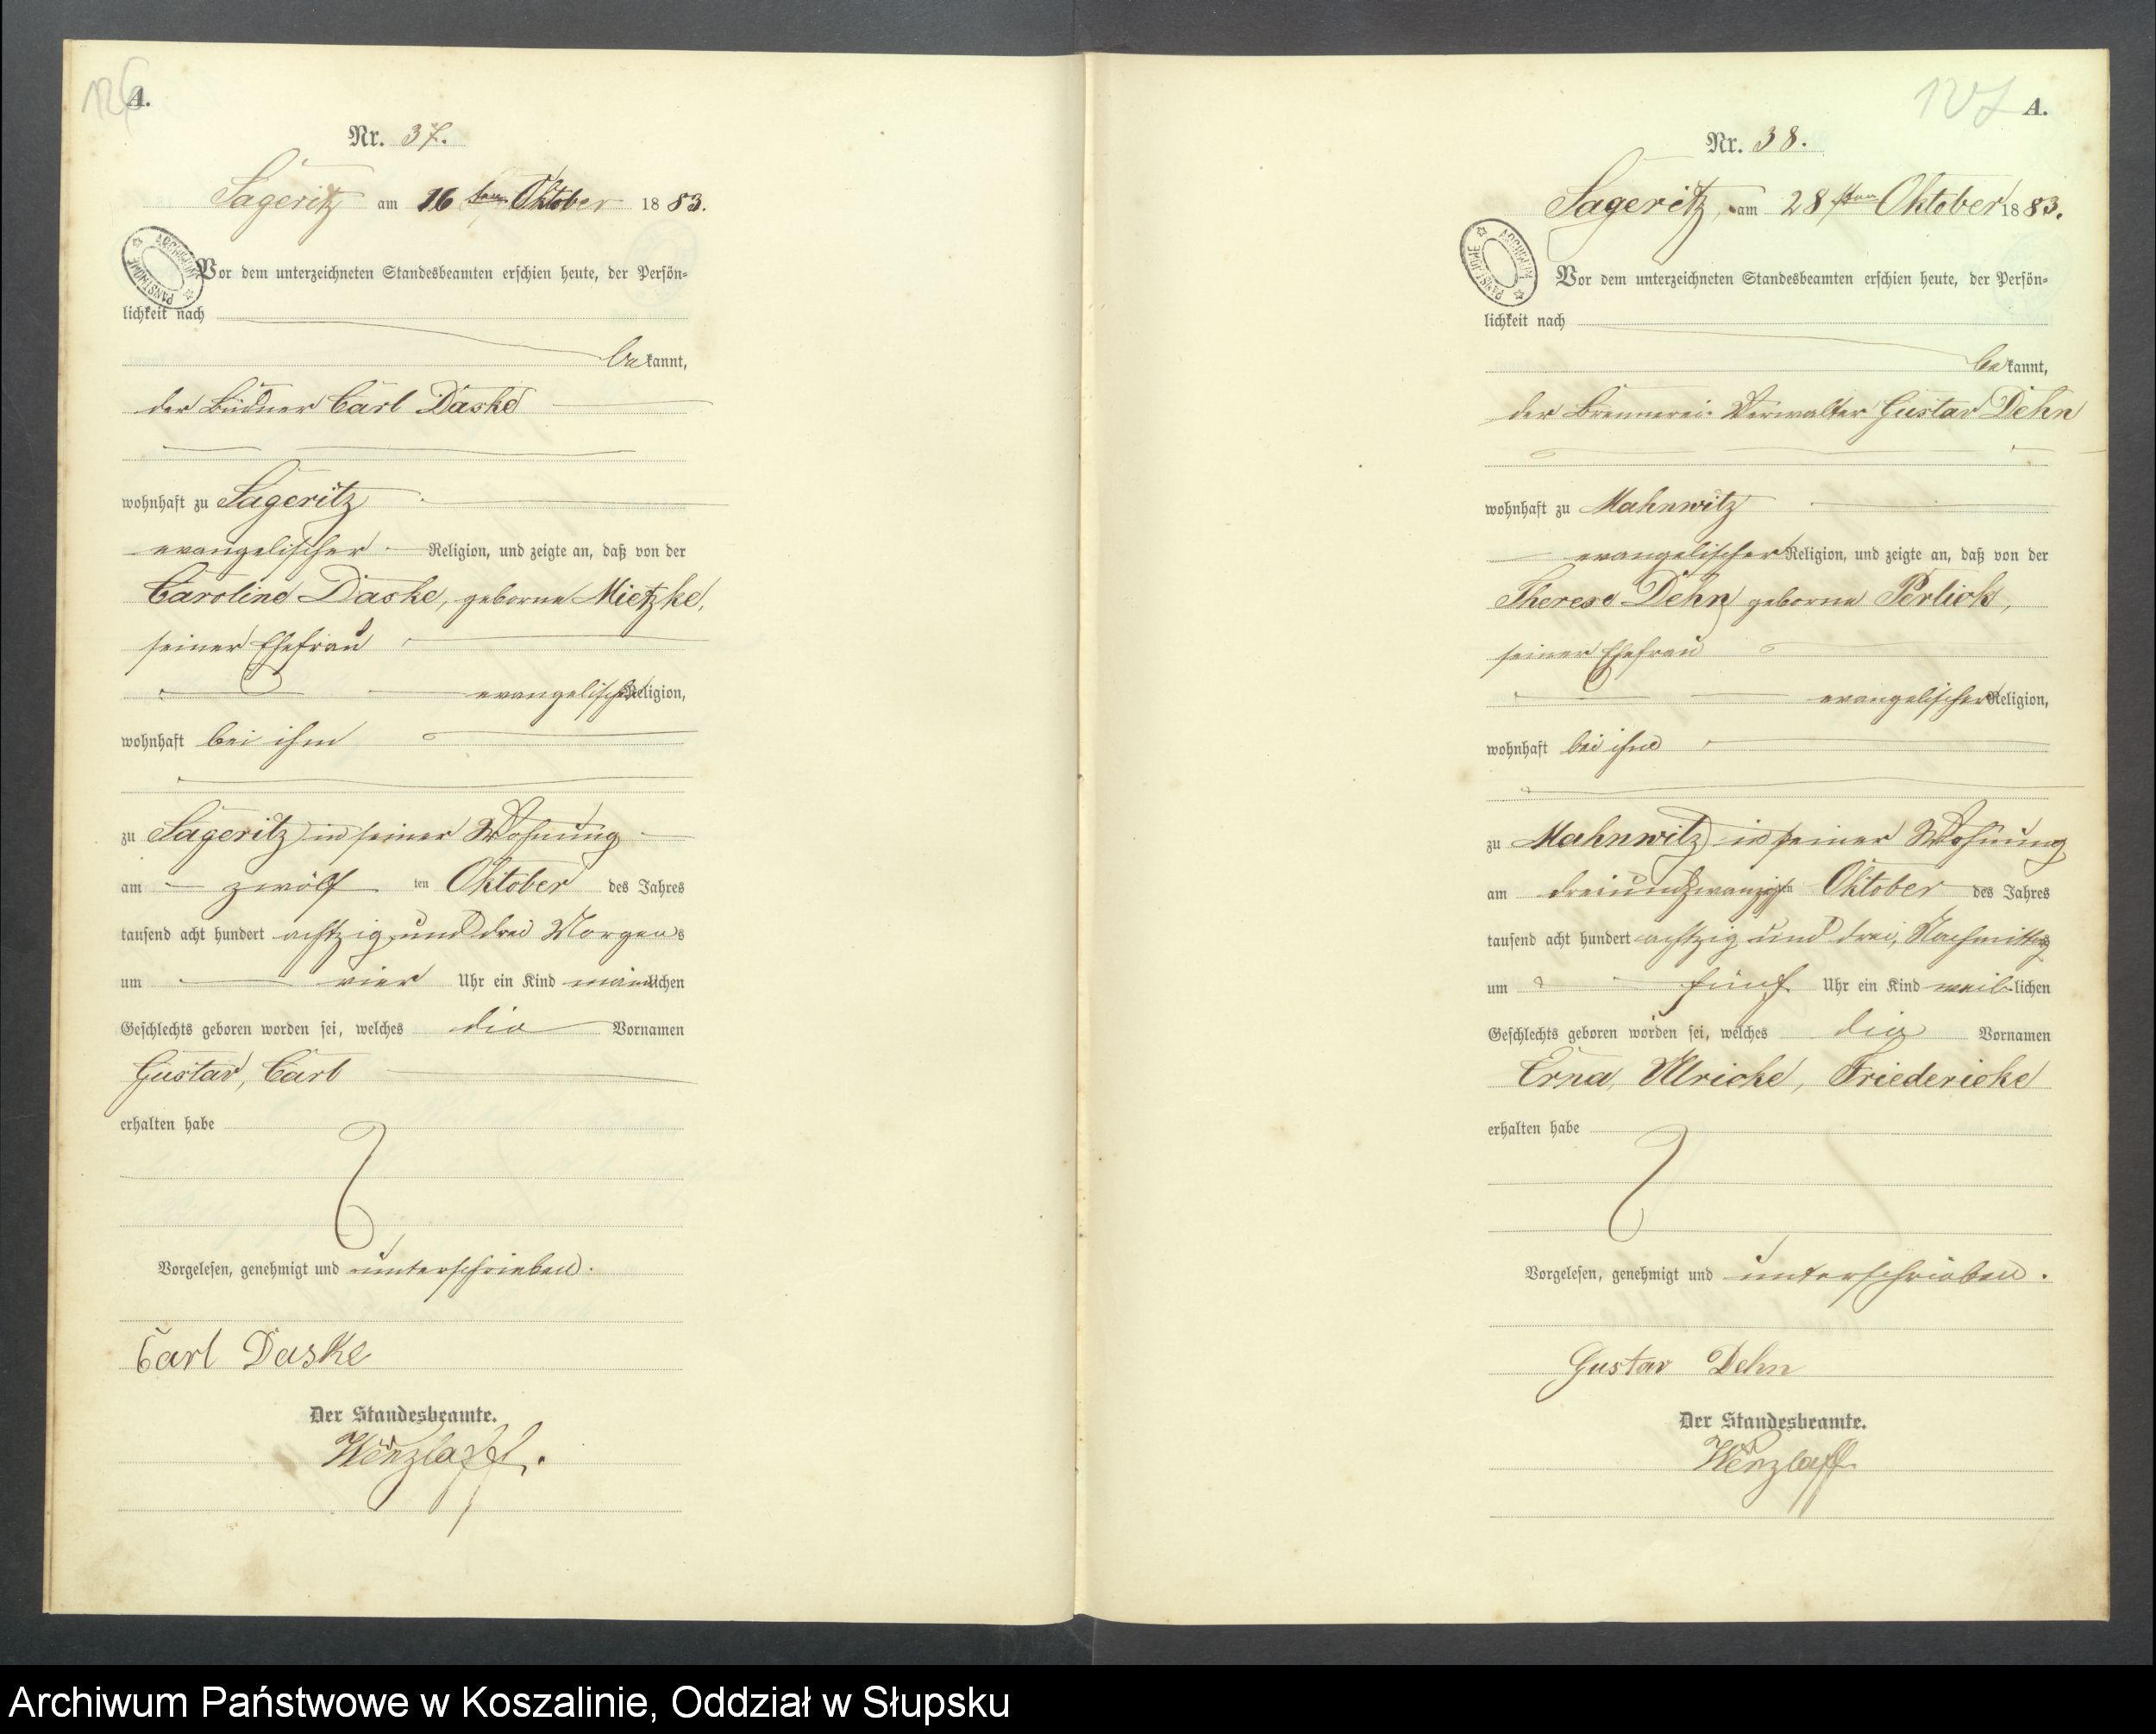 126
A.
Nr. 37.
Sageritz am 16 ten Oktober 1883.
ARCHIWUM PAŃSTWOWE
Vor dem unterzeichneten Standesbeamten erschien heute, der Persön-
lichkeit nach
bekannt,
der Büdner Carl Daske
wohnhaft zu Sageritz
evangelischer Religion, und zeigte an, daß von der
Caroline Daske, geborne Mietzke,
seiner Ehefrau
evangelischer Religion,
wohnhaft bei ihm
zu Sageritz in seiner Wohnung
am zwölf ten Oktober des Jahres
tausend acht hundert achtzig und drei Morgens
um vier Uhr ein Kind männlichen
Geschlechts geboren worden sei, welches die Vornamen
Gustav, Carl
erhalten habe
Vorgelesen, genehmigt und unterschrieben.
Carl Daske
Der Standesbeamte.
Wenzlaff.
127
A.
Nr. 38.
Sageritz, am 28 sten Oktober 1883.
ARCHIWUM PAŃSTWOWE
Vor dem unterzeichneten Standesbeamten erschien heute, der Persön-
lichkeit nach
bekannt,
der Brennerei-Verwalter Gustav Dehn
wohnhaft zu Mahnwitz
evangelischer Religion, und zeigte an, daß von der
Therese Dehn geborne Perlick,
seiner Ehefrau
evangelischer Religion,
wohnhaft bei ihm
zu Mahnwitz in seiner Wohnung
am dreiundzwanzigsten Oktober des Jahres
tausend acht hundert achtzig und drei, Nachmittags
um fünf Uhr ein Kind weiblichen
Geschlechts geboren worden sei, welches die Vornamen
Erna, Ulricke, Friedericke
erhalten habe
Vorgelesen, genehmigt und unterschrieben.
Gustav Dehn
Der Standesbeamte.
Wenzlaff
Archiwum Państwowe w Koszalinie, Oddział w Słupsku